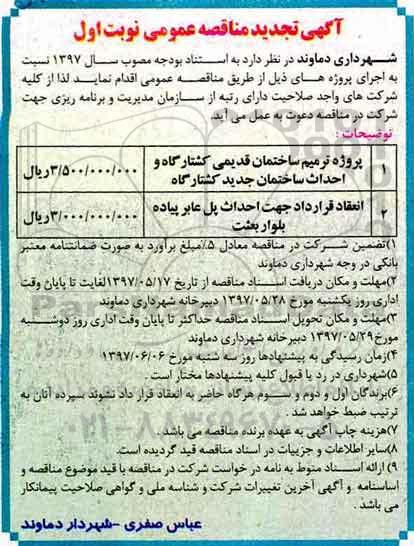 آگهی تجدید مناقصه عمومی نوبت اول
شهرداری دماوند در نظر دارد به استناد بودجه مصوب سال ۱۳۹۷ نسبت
به اجرای پروژه های ذیل از طریق مناقصه عمومی اقدام نماید لذا از کلیه
شرکت های واجد صلاحیت دارای رتبه از سازمان مدیریت و برنامه ریزی جهت
شرکت در مناقصه دعوت به عمل می آید.
توضیحات :
۱ پروژه ترمیم ساختمان قدیمی کشتارگاه و ۳/۵۰۰/۰۰۰/۰۰۰ریال
احداث ساختمان جدید کشتارگاه
۲ انعقاد قرارداد جهت احداث پل عابر پیاده ۳/۰۰۰/۰۰۰/۰۰۰ریال
بلوار بعثت
۱)تضمین شرکت در مناقصه معادل ۵٪مبلغ برآورد به صورت ضمانتنامه معتبر
بانکی در وجه شهرداری دماوند
۲)مهلت و مکان دریافت اسناد مناقصه از تاریخ ۱۳۹۷/۰۵/۱۷لغایت تا پایان وقت
اداری روز یکشنبه مورخ ۱۳۹۷/۰۵/۲۸ دبیرخانه شهرداری دماوند
۳)مهلت و مکان تحویل اسناد مناقصه حداکثر تا پایان وقت اداری روز دوشنبه
مورخ۱۳۹۷/۰۵/۲۹ دبیرخانه شهرداری دماوند
۴)زمان رسیدگی به پیشنهادها روز سه شنبه مورخ ۱۳۹۷/۰۶/۰۶
۵)شهرداری در رد یا قبول کلیه پیشنهادها مختار است .
۶)برندگان اول و دوم و سوم هرگاه حاضر به انعقاد قرار داد نشوند سپرده آنان به
ترتیب ضبط خواهد شد .
۷)هزینه چاپ آگهی به عهده برنده مناقصه می باشد .
۸)سایر اطلاعات و جزییات در اسناد مناقصه قید گردیده است.
۹) ارائه اسناد منوط به نامه درخواست شرکت در مناقصه با قید موضوع مناقصه و
اساسنامه و آگهی آخرین تغییرات شرکت و شناسه ملی و گواهی صلاحیت پیمانکار
می باشد .
عباس صفری -شهردار دماوند